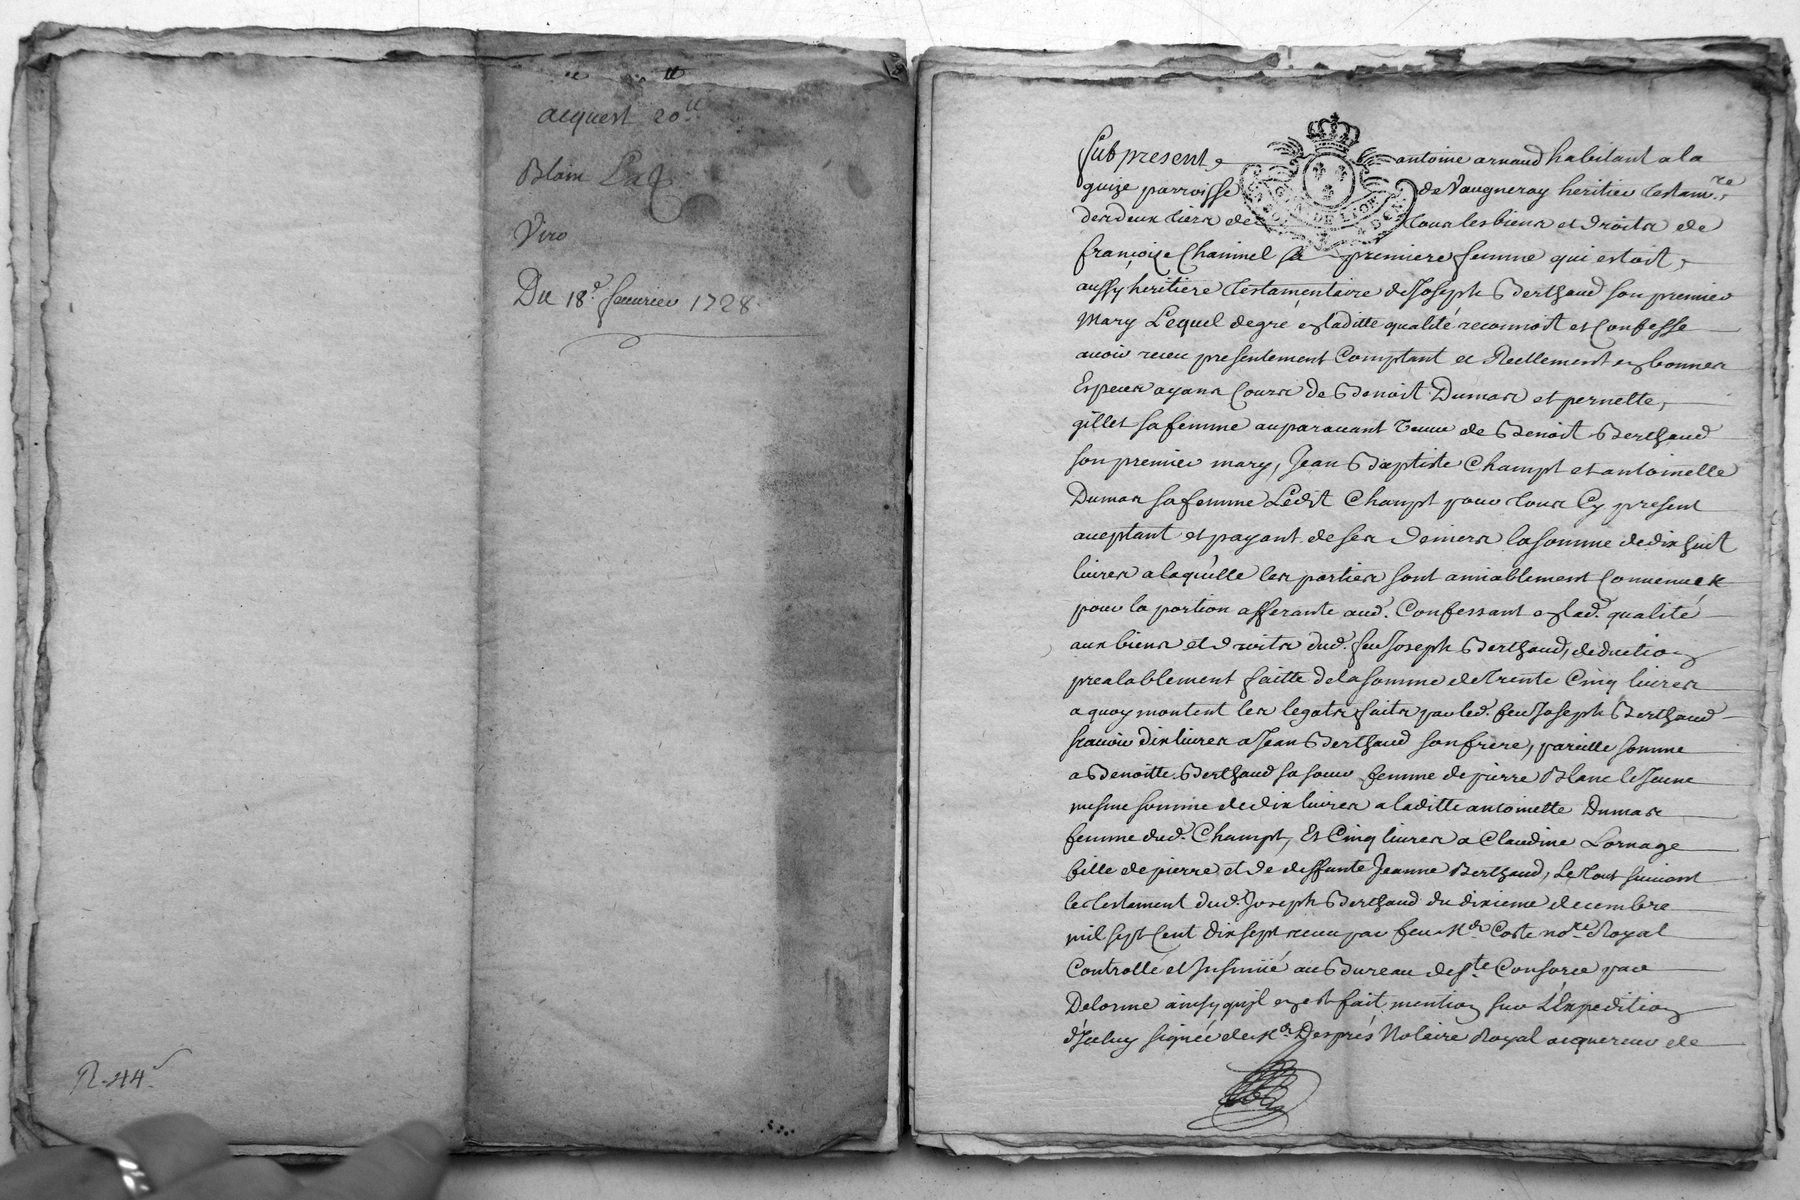 acquest 20ᵗᵗ
Blain
Viro
Du 18ᵉ. feuurier 1728
R. 44ˢ
Sut present,
antoine arnaud habitant a la
guize parroisse
de Vaugneray heritier testamʳᵉ
des deux tiers de
tous les biens et droits de
françoize Chaminel sa premiere femme qui estoit,
aussy heritiere testamentaire de Joseph Berthaud son premier
Mary Lequel de gré en laditte qualité reconnoit et Confesse
auoir receu presentement Comptant et Reellement en bonnes
Especes ayans Cours de Benoit Dumas et pernette,
gillet sa femme auparauant veuue de Benoit Berthaud
son premier mary, Jean Baptiste Champt et antoinette
Dumas sa femme Ledit Champt pour tous Cy present
aceptant et payant de ses deniers la somme de dix huit
liures a laquelle les parties sont amiablement Conuenues
pour la portion afferante aud. Confessant en lad. qualité
aux biens et droits dud. feu Joseph Berthaud, deduction
prealablement faitte de la somme de trente Cinq liures
a quoy montent les legats faits par led. feu Joseph Berthaud
scauoir dix liures a Jean Berthaud son frere, pareille somme
a Benoitte Berthaud sa soeur femme de pierre Blanc le Jeune
mesme somme de dix liures a laditte antoinette Dumas
femme dud. Champt, Et Cinq liures a Claudine Lornage
fille de pierre et de deffunte Jeanne Berthaud, Le tout suiuant
le testament dud. Joseph Berthaud du dixieme decembre
mil sept Cent dix sept receu par feu Mᵉ Coste noʳᵉ Royal
Controllé et Insinüé au Bureau de sᵗᵉ Consorce par
Delorme ainsy qu'jl en est fait mention sur L'Expedition
d'Jceluy signée de Mᵉ Després Notaire Royal acquereur de